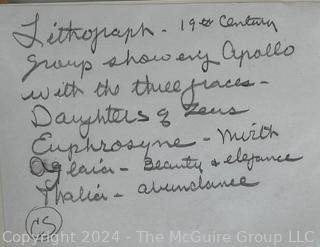 Lithograph - 19th Century
group showing Apollo
with the three graces -
Daughters of Zeus
Euphrosyne - mirth
Aglaia - Beauty & elegance
Thalia - abundance
Copyright 2024 - The McGuire Group LLC